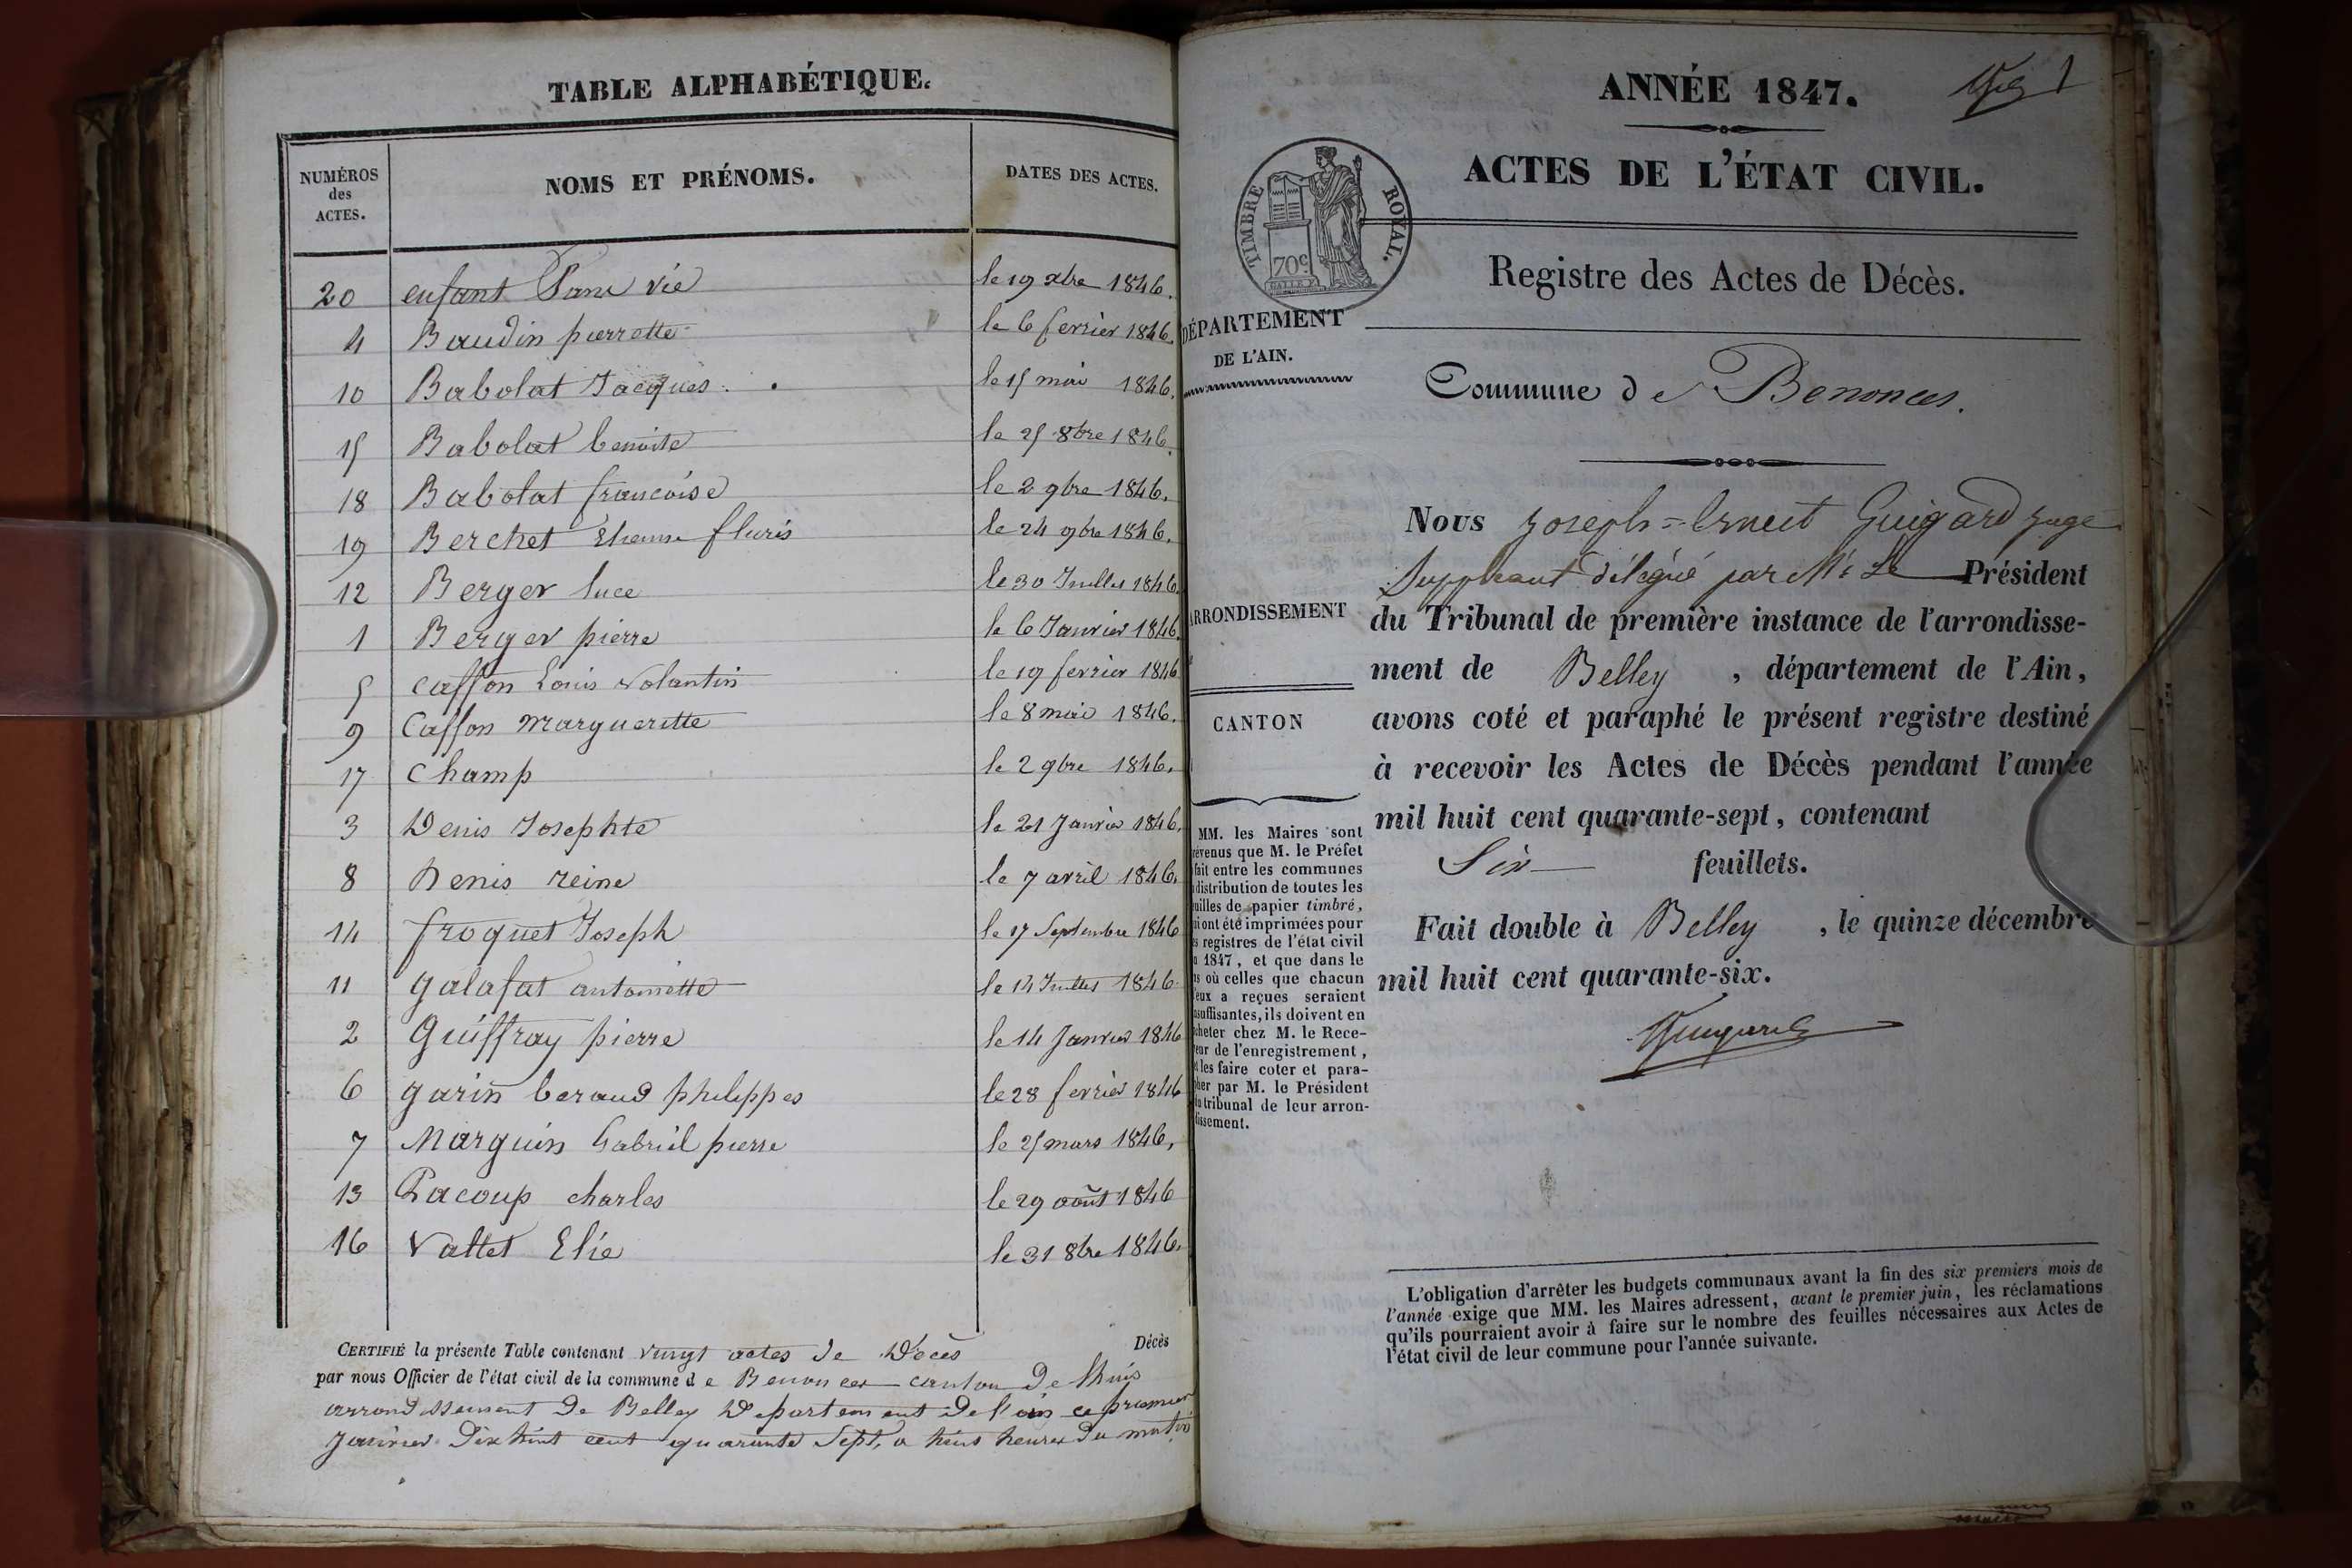 TABLE ALPHABÉTIQUE.
NUMÉROS des ACTES. NOMS ET PRÉNOMS. DATES DES ACTES.
20 enfant Sans vie le 19 xbre 1846.
4 Baudin pierrette le 6 fevrier 1846.
10 Babolat Jacques. le 15 mai 1846.
15 Babolat benoite le 25 8bre 1846.
18 Babolat francoise le 2 9bre 1846.
19 Berchet Etienne fleuris le 24 9bre 1846.
12 Berger luce le 30 Juillet 1846.
1 Berger pierre le 6 Janvier 1846.
5 Caffon Louis Volantin le 19 fevrier 1846
9 Caffon Margueritte le 8 mai 1846.
17 Champ le 2 9bre 1846.
3 Denis Josephte le 21 Janvier 1846.
8 Denis reine le 7 avril 1846.
14 froquet Joseph le 17 Septembre 1846
11 galafat antoinette le 14 Juillet 1846
2 Guiffray pierre le 14 Janvier 1846
6 garin beraud philippes le 28 fevrier 1846
7 Marguin Gabriel pierre le 25 mars 1846,
13 Racoup charles le 29 août 1846
16 Vallet Elie le 31 8bre 1846.
CERTIFIÉ la présente Table contenant vingt actes de Décès Décès
par nous Officier de l'état civil de la commune de Benonces canton de lhuis
arrondissement de Belley Departement de l'ain ce premier
Janvier dix huit cent quarante Sept, a huis heures du matin
ANNÉE 1847.
1
ACTES DE L'ÉTAT CIVIL.
TIMBRE ROYAL.
70c
Registre des Actes de Décès.
DÉPARTEMENT
DE L'AIN.
Commune de Benonces.
Nous Joseph=Ernest Guigard Juge
Suppleant délégué par Mr Le Président
du Tribunal de première instance de l'arrondisse-
ment de Belley, département de l'Ain,
avons coté et paraphé le présent registre destiné
à recevoir les Actes de Décès pendant l'année
mil huit cent quarante-sept, contenant
Six feuillets.
Fait double à Belley, le quinze décembre
mil huit cent quarante-six.
Guigard
ARRONDISSEMENT
CANTON
MM. les Maires sont
évenus que M. le Préfet
fait entre les communes
distribution de toutes les
uilles de papier timbré,
ui ont été imprimées pour
s registres de l'état civil
1847, et que dans le
as où celles que chacun
'eux a reçues seraient
nsuffisantes, ils doivent en
cheter chez M. le Rece-
eur de l'enregistrement,
t les faire coter et para-
her par M. le Président
u tribunal de leur arron-
issement.
L'obligation d'arrêter les budgets communaux avant la fin des six premiers mois de
l'année exige que MM. les Maires adressent, avant le premier juin, les réclamations
qu'ils pourraient avoir à faire sur le nombre des feuilles nécessaires aux Actes de
l'état civil de leur commune pour l'année suivante.